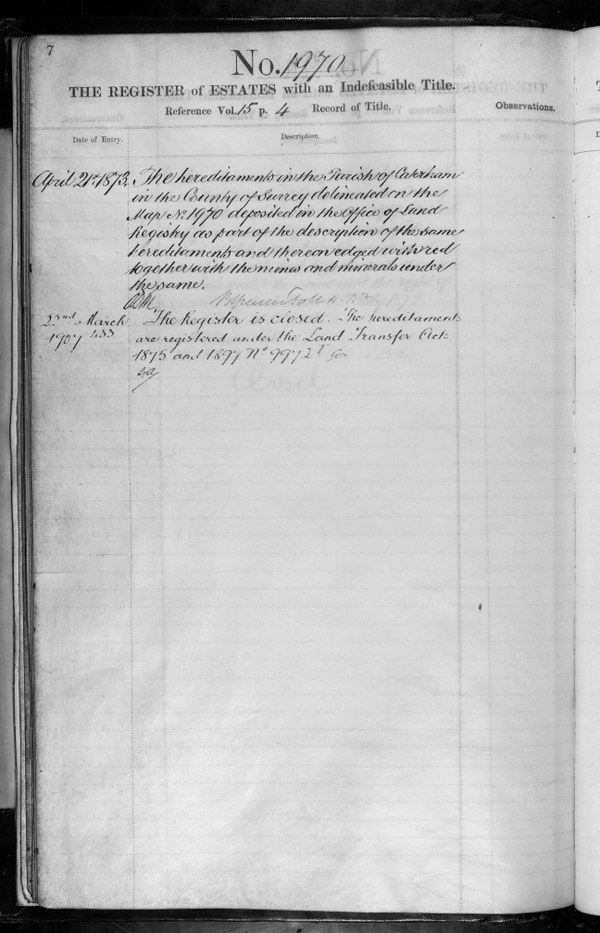 7
No. 1970
THE REGISTER of ESTATES with an Indefeasible Title.
Reference Vol. 15 p. 4 Record of Title.
Observations.
Date of Entry.
Description.
April 21st 1873. The hereditaments in the Parish of Caterham
in the County of Surrey delineated on the
Map No. 1970 deposited in the Office of Land
Registry as part of the description of the same
hereditaments and thereon edged with red
together with the mines and minerals under
the same.
22nd March The Register is closed. The hereditaments
1907 are registered under the Land Transfer Acts
1875 and 1897 No 9972